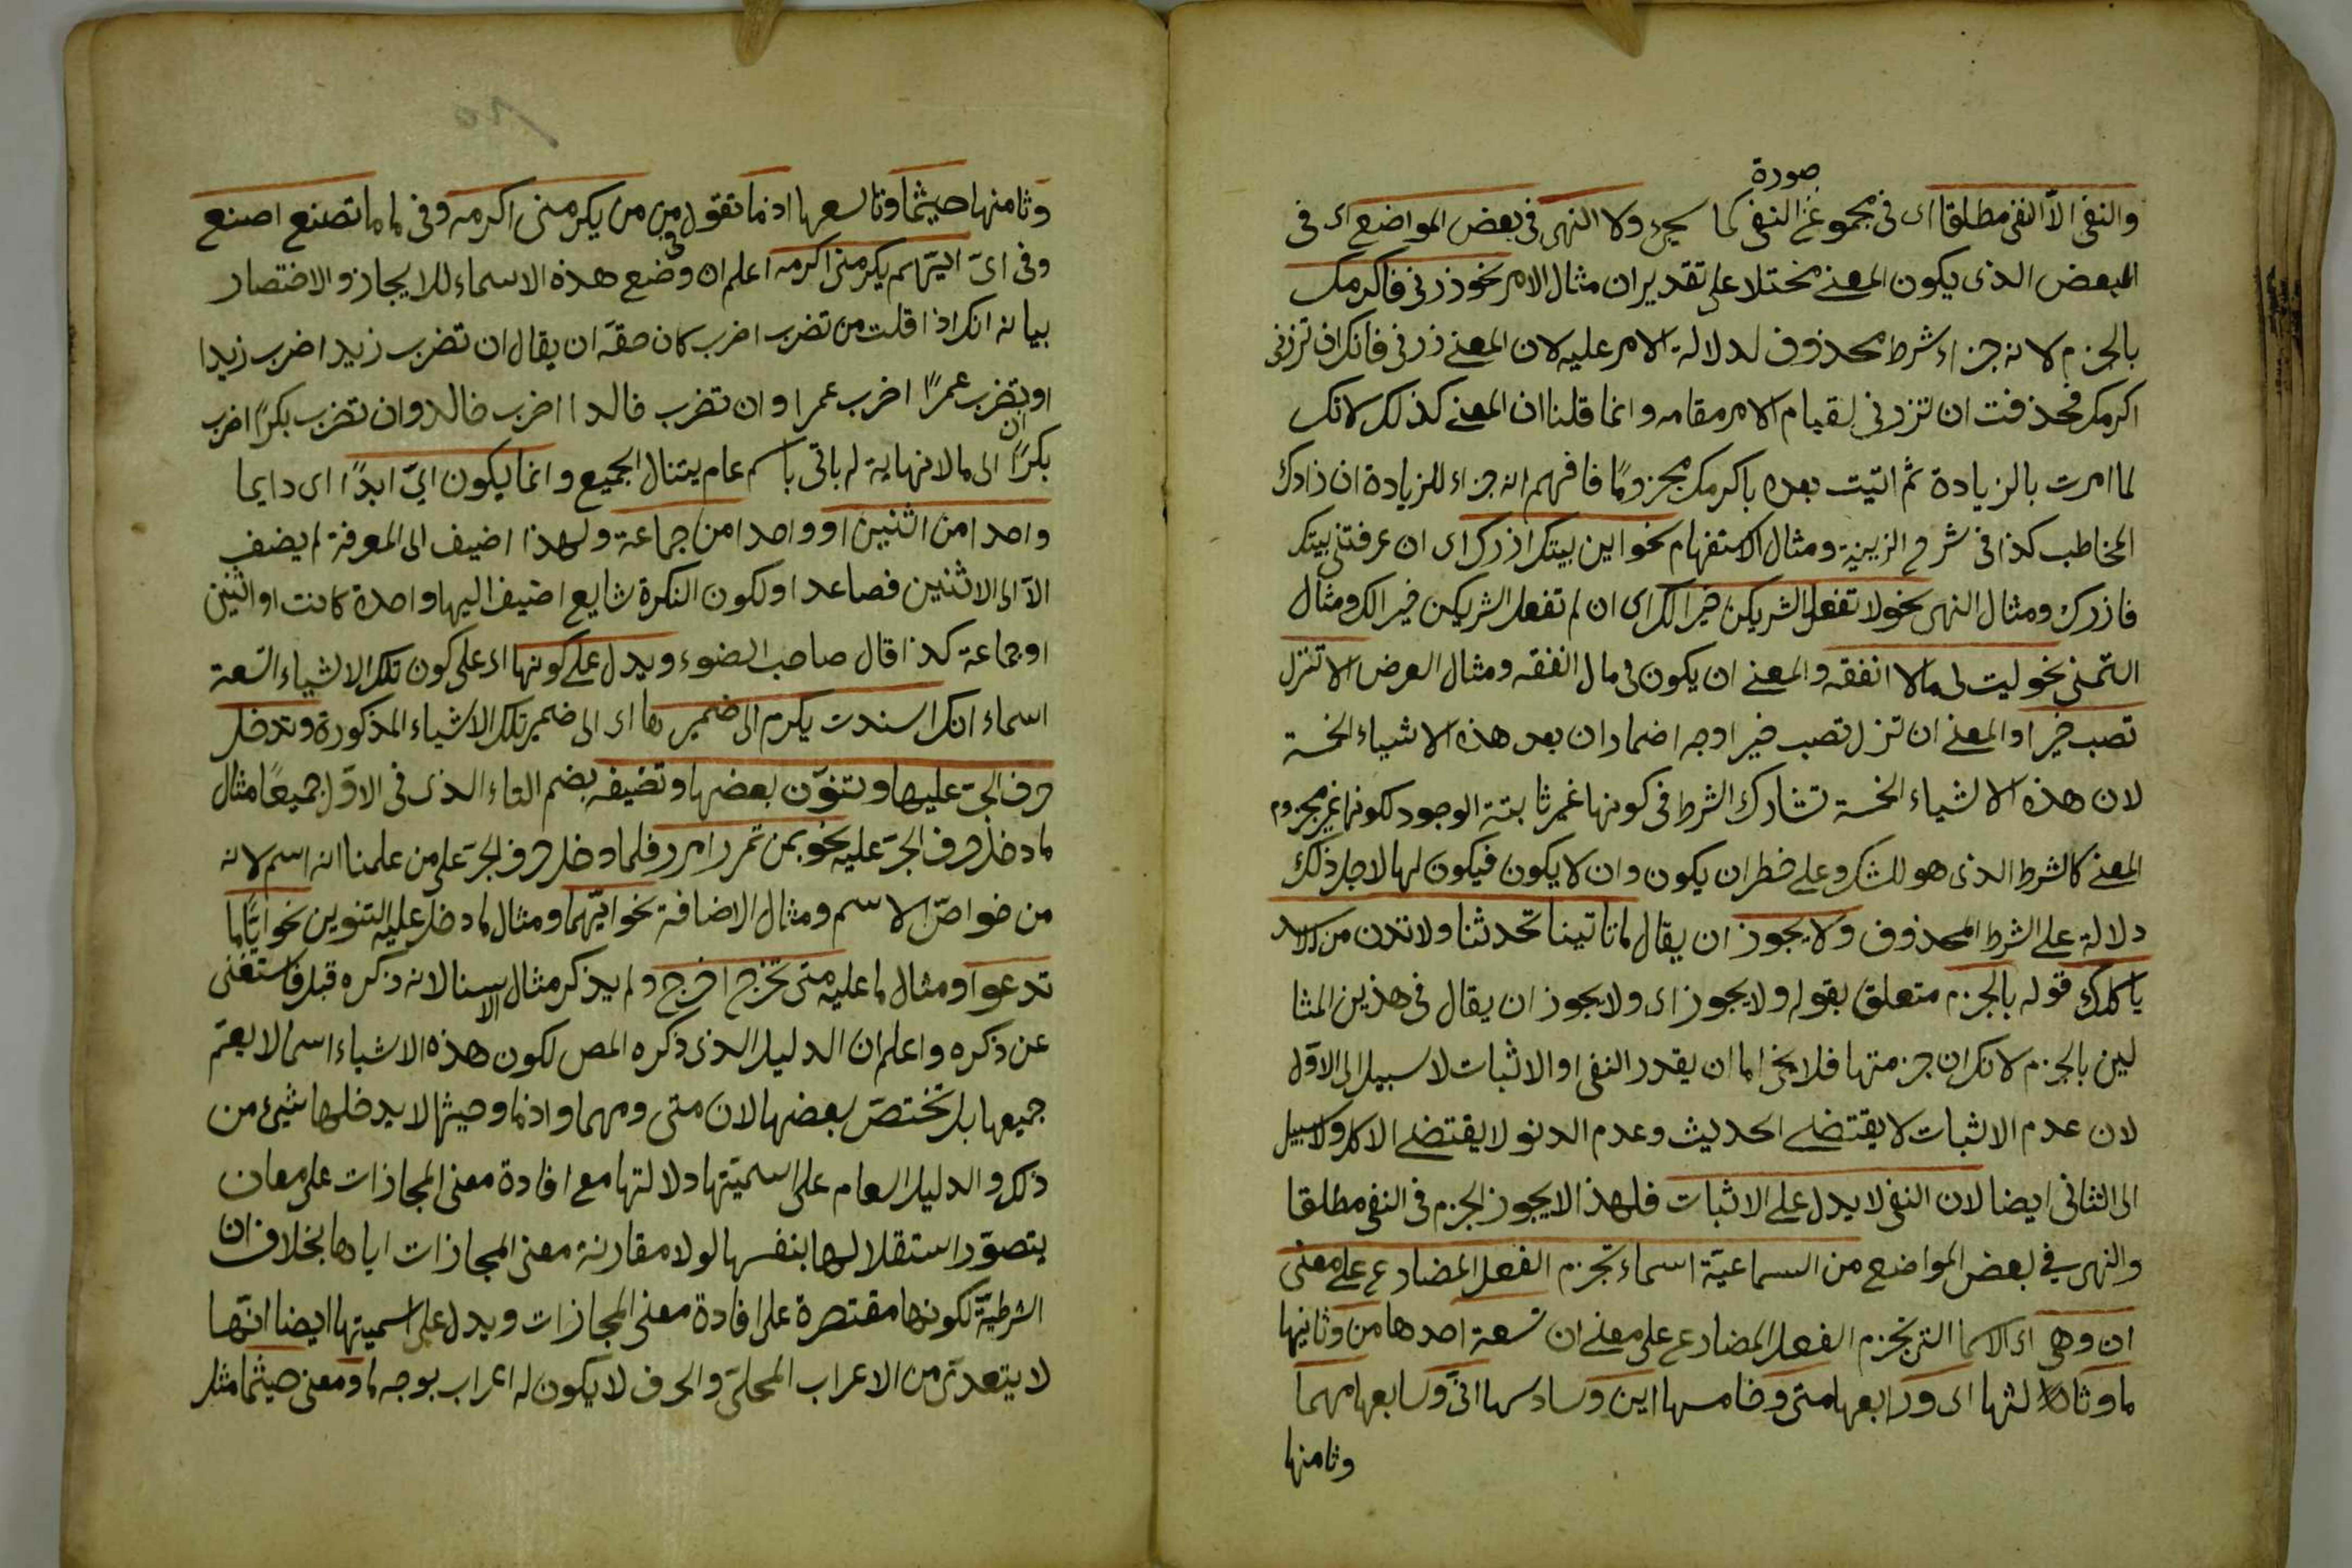 صورة
والنفى الا النفى مطلقا اى فى مجموع النفى كما سيجئ ولا النهى فى بعض المواضع اى فى
البعض الذى يكون المعنى مختلا على تقدير ان مثال الامر نحو زرنى فاكرمك
بالجزم لانه جزاء شرط محذوف لدلالة الامر عليه لان المعنى زرنى فانك ان تزرنى
اكرمك فحذفت ان تزرنى لقيام الامر مقامه وانما قلنا ان المعنى كذلك لانك
لما امرت بالزيادة ثم اتيت بعده باكرمك مجزومًا فافهم انه جزاء للزيادة ان زادك
المخاطب كذا فى شرح الزينية ومثال الاستفهام نحو اين بيتك ازرك اى ان عرفتنى بيتك
فازرك ومثال النهى نحو لا تفعل الشر يكن خيرا لك اى ان لم تفعل الشر يكن خيرا لك ومثال
التمنى نحو ليت لى مالا انفقه والمعنى ان يكون لى مال انفقه ومثال العرض الا تنزل
تصب خيرا والمعنى ان تنزل تصب خيرا وجه اضمار ان بعد هذه الاشياء الخمسة
لان هذه الاشياء الخمسة تشارك الشرط فى كونها غير ثابتة الوجود لكونها غير مجزوم
المعنى كالشرط الذى هو للشك وعلى خطر ان يكون وان لا يكون فيكون لها لاجل ذلك
دلالة على الشرط المحذوف ولا يجوز ان يقال ما تاتينا تحدثنا ولا تدن من الاسد
ياكلك قوله بالجزم متعلق بقوله ولا يجوز اى ولا يجوز ان يقال فى هذين المثا
لين بالجزم لانك ان جزمتها فلا يخ اما ان يقدر النفى او الاثبات لا سبيل الى الاول
لان عدم الاثبات لا يقتضى الحديث وعدم الدنو لا يقتضى الاكل ولا سبيل
الى الثانى ايضا لان النفى لا يدل على الاثبات فلهذا لا يجوز الجزم فى النفى مطلقا
والنهى فى بعض المواضع من السماعية اسماء تجزم الفعل المضارع على معنى
ان وهى اى الاسما التى تجزم الفعل المضارع على معنى ان تسعة احدها من وثانيها
ما وثالثها اى ورابعها متى وخامسها اين وسادسها انى وسابعها مهما
وثامنها
وثامنها حيثما وتاسعها اذما تقول فى من من يكرمنى اكرمه وفى ما ما تصنع اصنع
وفى اىّ ايّهم يكرمنى اكرمه اعلم ان وضع هذه الاسماء للايجاز والاختصار
بيانه انك اذا قلت من تضرب اضرب كان حقه ان يقال ان تضرب زيدا اضرب زيدا
او ان تضرب عمرًا اضرب عمرا وان تضرب خالدا اضرب خالد وان تضرب بكرًا اضرب
بكرًا الى ما لا نهاية له باتى باسم عام يتنال الجميع وانما يكون اىّ ابدًا اى دايما
واحدا من اثنين او واحدا من جماعة ولهذا اضيف الى المعرفة لم يضف
الا الى الاثنين فصاعدا ولكون النكرة شايع اضيف اليها واحدة كانت او اثنين
او جماعة كذا قال صاحب الضوء ويدل على كونها اى على كون تلك الاشياء التسعة
اسماء انك اسندت يكرم الى ضميرها اى الى ضمير تلك الاشياء المذكورة وتدخل
حرف الجرّ عليها وتنوّن بعضها وتضيفه بضم التاء الذى فى الاوّل جميعًا مثال
ما دخل حرف الجرّ عليه نحو بمن تمرر امرر فلما دخل حرف الجرّ على من علمنا انه اسم لانه
من خواصّ الاسم ومثال الاضافة نحو ايّهما ومثال ما دخل عليه التنوين نحو ايًّا ما
تدعوا ومثال ما عليه متى تخرج اخرج ولم يذكر مثال الاسنا لانه ذكره قبل فاستغنى
عن ذكره واعلم ان الدليل الذى ذكره المص لكون هذه الاشياء اسما لا يعمّ
جميعها بل تختصّ بعضها لان متى ومهما واذما وحيثما لا يدخلها شيئ من
ذلك والدليل العام على اسميّتها دلالتها مع افادة معنى المجازات على معان
يتصوّر استقلالها بنفسها لولا مقارنة معنى المجازات اياها بخلاف ان
الشرطيّة لكونها مقتصرة على افادة معنى المجازات ويدل على اسميتها ايضا انّها
لا يتعدى من الاعراب المحلىّ والحرف لا يكون له اعراب بوجه ما ومعنى حيثما مثل